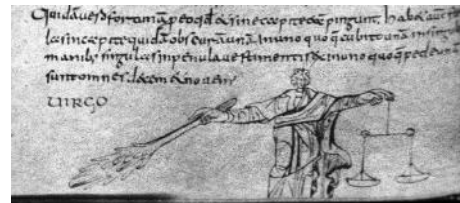 fortunam p eo qđ & sine capite pingunt. Hab&
las in capite quidā obscurā unā. In uno quoq cubito unā. In singul
manib; singulas in pennula uestimenti & in uno quoq pede unā
sunt omnes decem & nouem
UIRGO